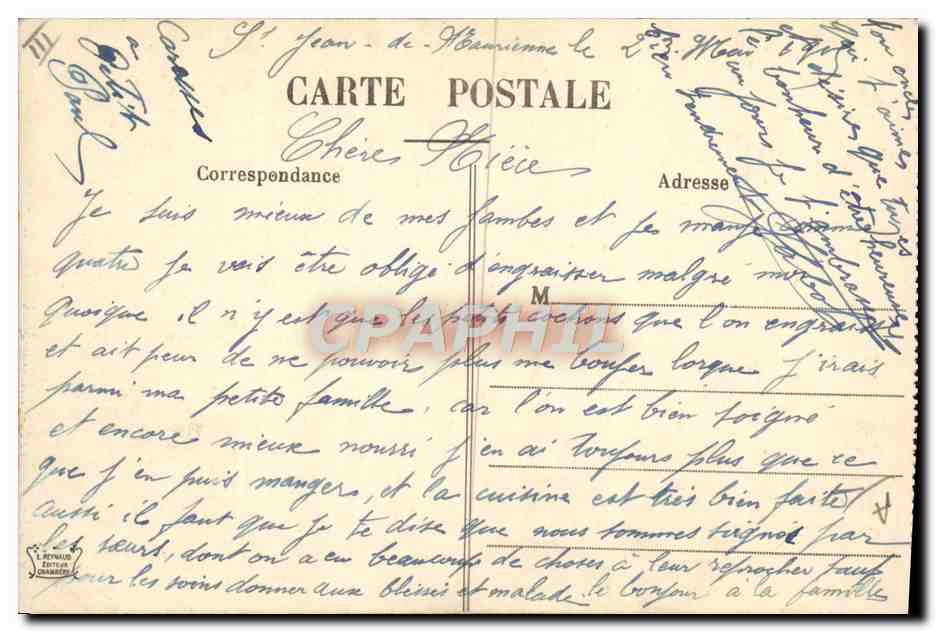 III
St Jean-de-Maurienne le 2
CARTE POSTALE
Chères Nièce
Correspondance
Adresse
Je suis mieux de mes jambes et je mange comme
quatre je vais être obligé d'engraisser malgré moi
M
quoique il n'y est que les petits cochons que l'on engraisse
CPAPHIL
et ait peur de ne pouvoir plus me bouger lorque j'irais
parmi ma petite famille, car l'on est bien soigné
et encore mieux nourri j'en ai toujours plus que ce
que j'en puis manger, et la cuisine est très bien faite
aussi il faut que je te dise que nous sommes soignés par
les sœurs, dont on a eu beaucoup de choses à leur reprocher sauf
pour les soins donner aux blessés et malade. le bonjour a la famille
E. REYNAUD
ÉDITEUR
CHAMBÉRY
Caresses
a
Petit
Paul
Ton oncle
qui t'aimes
et qui désires que tu sois
bonheur d'être heureuse
un jour je t'embrasse
bien tendrement